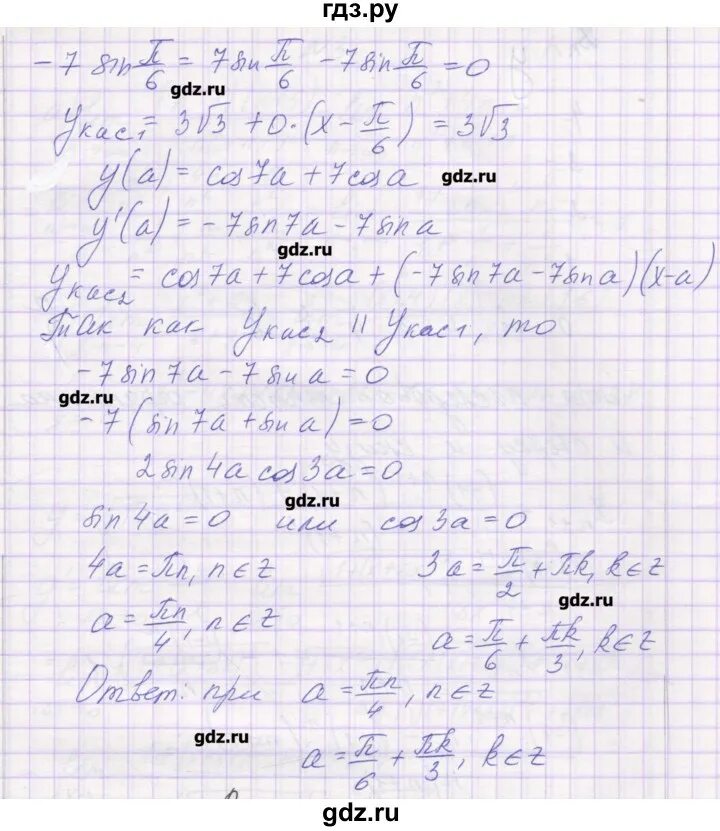 гдз.ру
- 7 sin π/6 = 7 sin π/6 - 7 sin π/6 = 0
gdz.ru
Yкас1 = 3√3 + 0·(x - π/6) = 3√3
y(a) = cos7a + 7cosa gdz.ru
y'(a) = -7sin7a - 7sina
gdz.ru
Yкас2 = cos7a + 7cosa + (-7sin7a - 7sina)(x-a)
Так как Yкас2 || Yкас1, то
-7sin7a - 7sina = 0
gdz.ru
-7(sin7a + sina) = 0
2sin4a cos3a = 0
gdz.ru
sin4a = 0 или cos3a = 0
4a = πn, n∈Z 3a = π/2 + πk, k∈Z
gdz.ru
a = πn/4, n∈Z a = π/6 + πk/3, k∈Z
Ответ: при a = πn/4, n∈Z
gdz.ru
a = π/6 + πk/3, k∈Z
gdz.ru